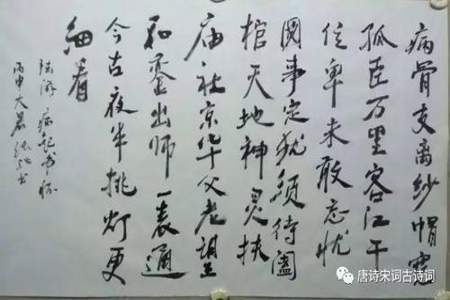 病骨支离纱帽宽
孤臣万里客江干
位卑未敢忘忧
国事定犹须待阖
棺天地神灵扶
庙社京华父老望
和銮出师一表通
今古夜半挑灯更
细看
陆游 病起书怀
丙申大暑 书
唐诗宋词古诗词